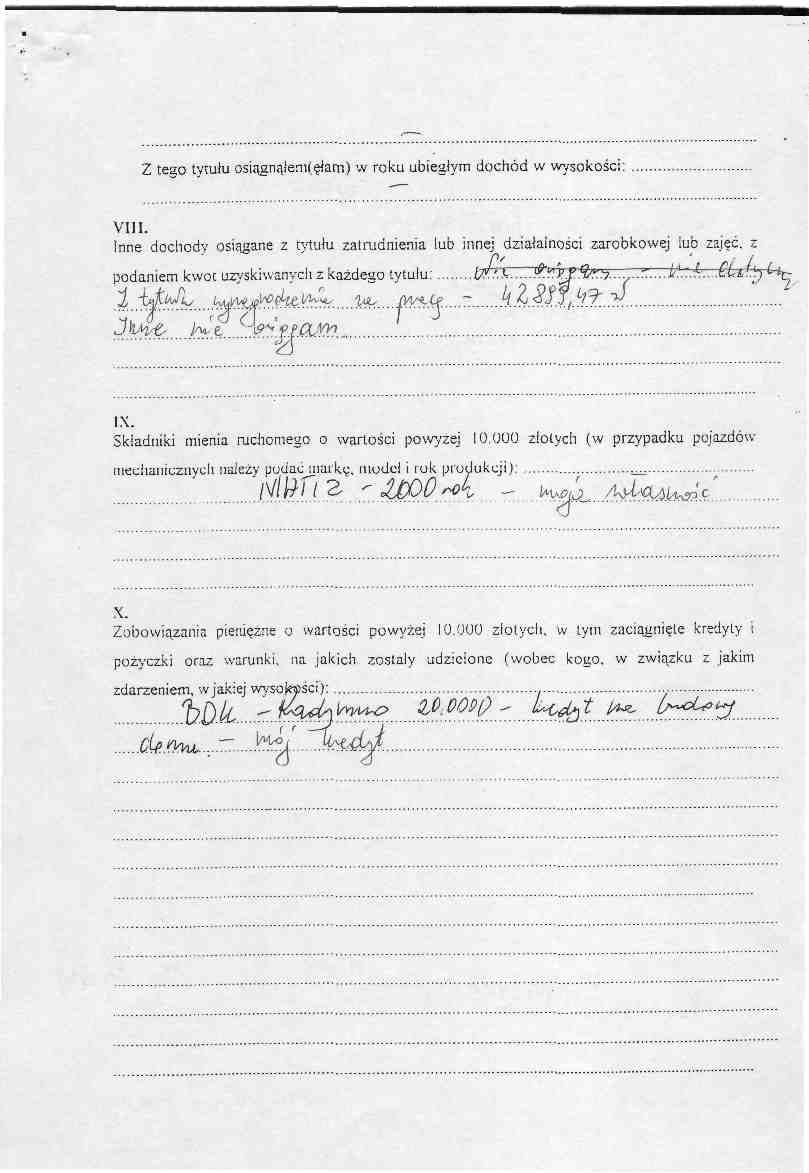 —
Z tego tytułu osiągnąłem(ęłam) w roku ubiegłym dochód w wysokości:
—
VIII.
Inne dochody osiągane z tytułu zatrudnienia lub innej działalności zarobkowej lub zajęć, z
podaniem kwot uzyskiwanych z każdego tytułu: Nie osiągam - nie dotyczy
Z tytułu wynagrodzenia za pracę - 42899,47 zł
Inne nie osiągam
IX.
Składniki mienia ruchomego o wartości powyżej 10.000 złotych (w przypadku pojazdów
mechanicznych należy podać markę, model i rok produkcji):
MATIZ - 2000 rok - moja własność
X.
Zobowiązania pieniężne o wartości powyżej 10.000 złotych, w tym zaciągnięte kredyty i
pożyczki oraz warunki, na jakich zostały udzielone (wobec kogo, w związku z jakim
zdarzeniem, w jakiej wysokości):
- Radymno 20.0000 - kredyt na budowę
domu. - mój kredyt